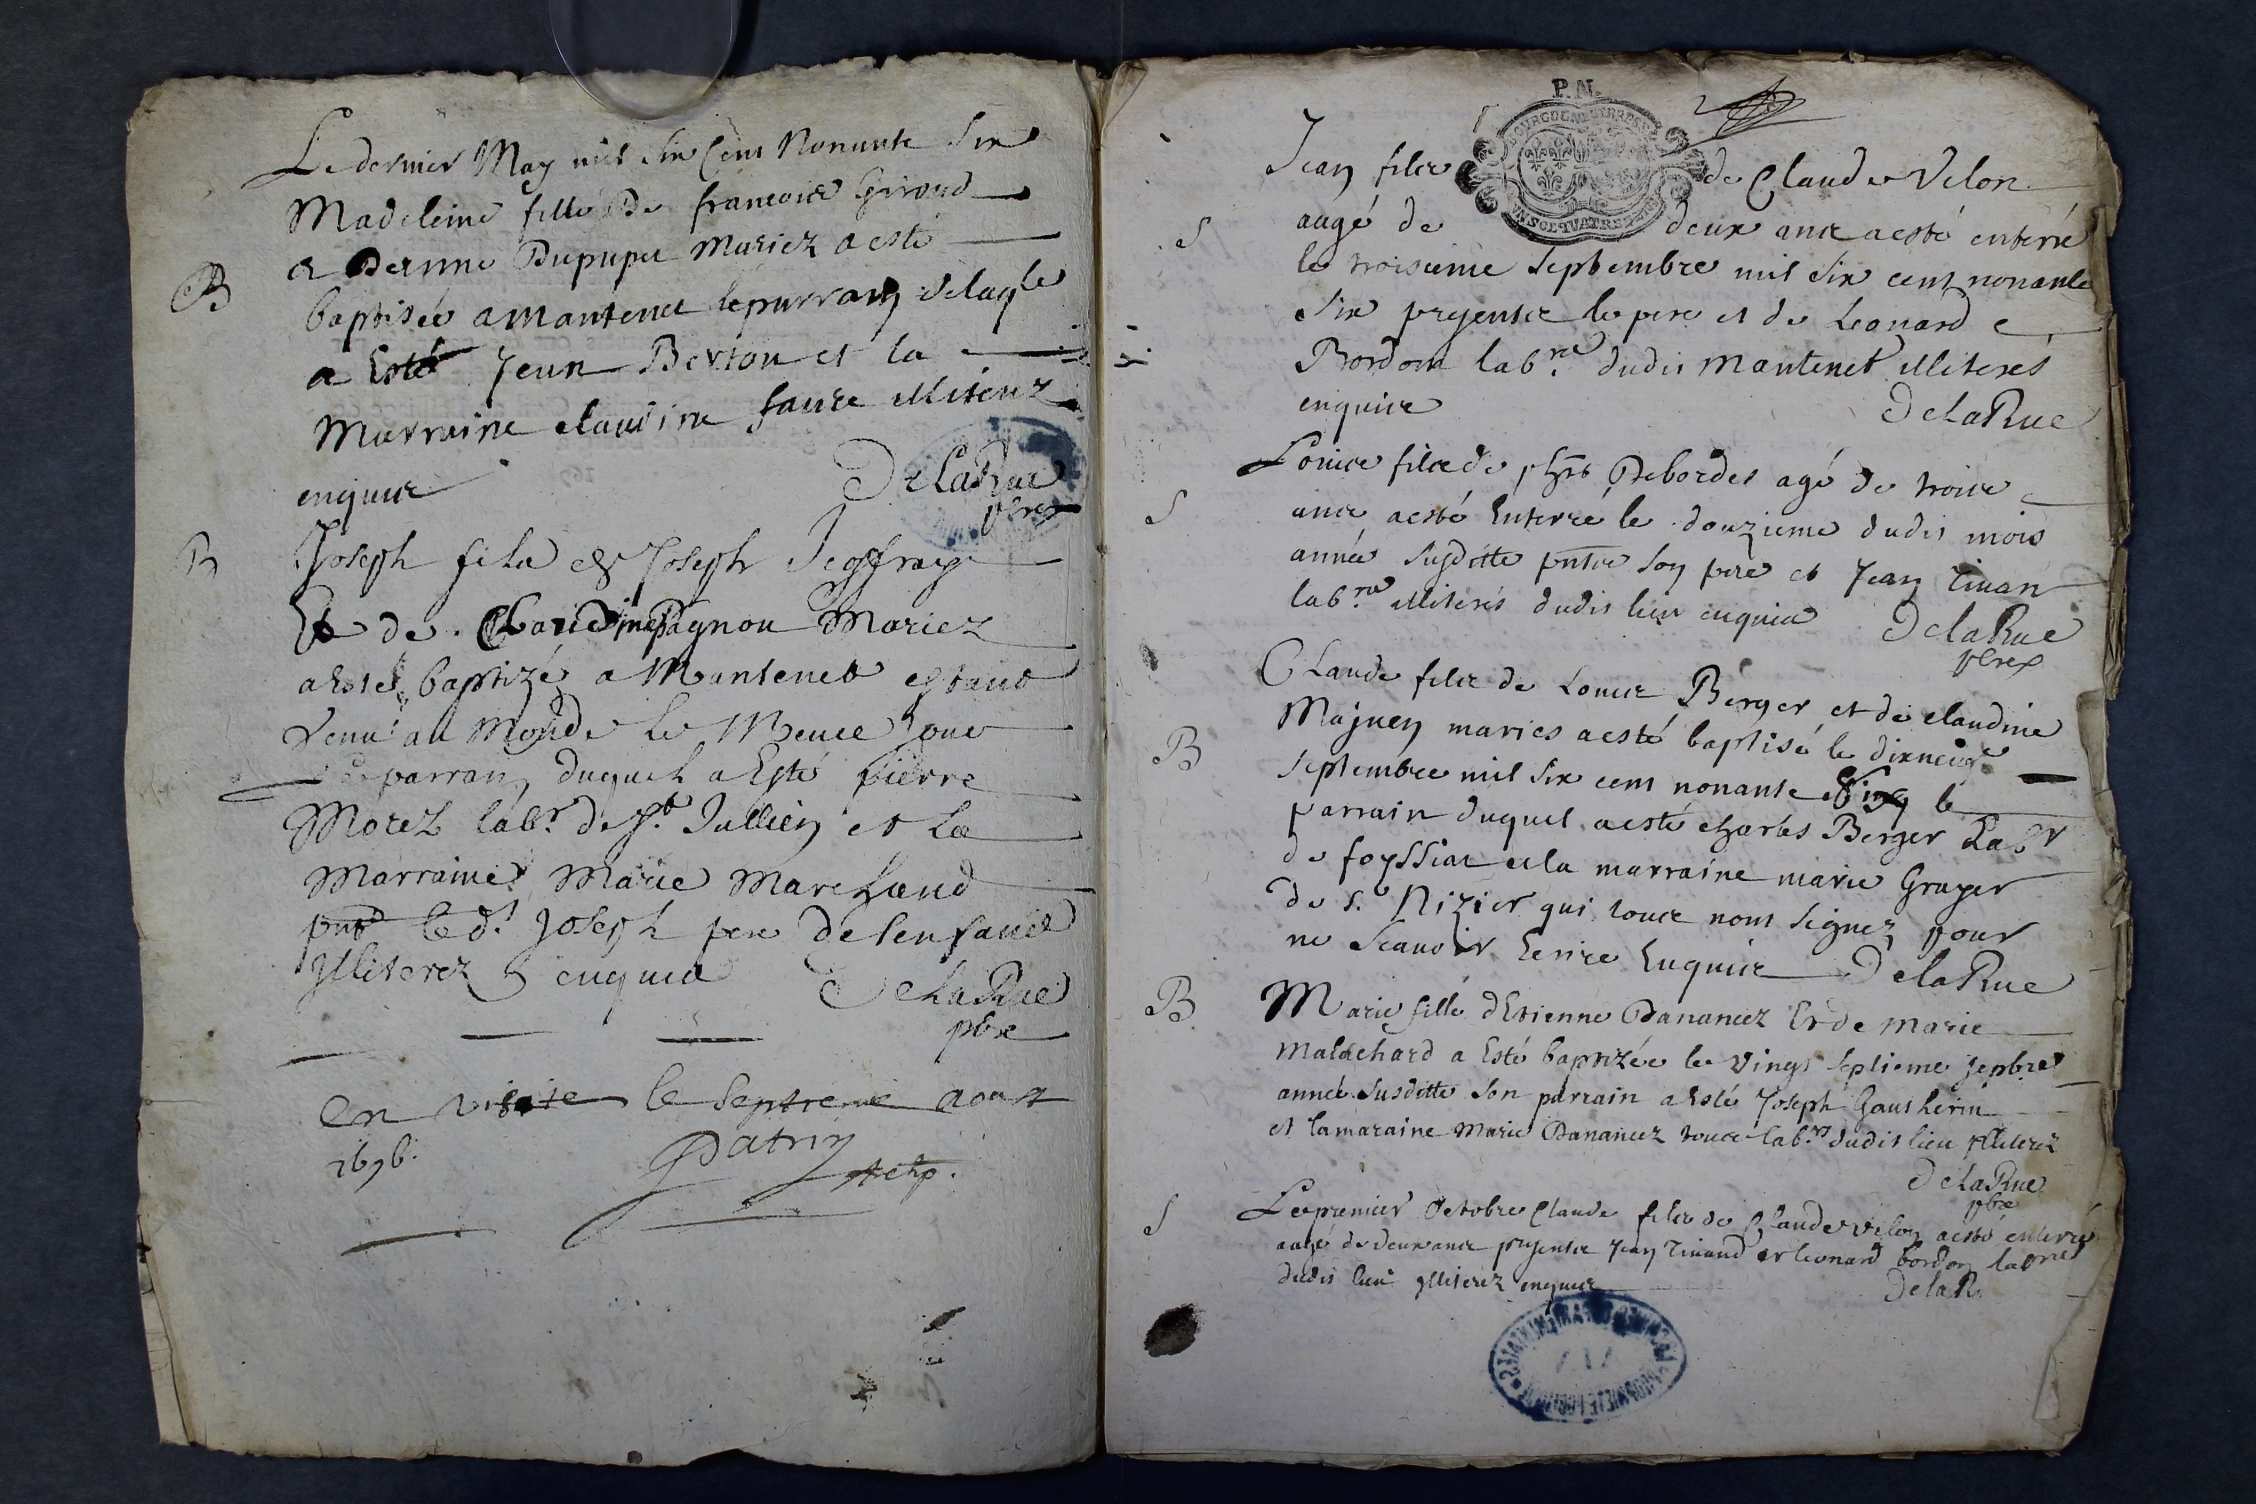 Le dernier May mil Six Cent Nonante Six
Madeleine fille De francois Giroud
et Dupupet Mariez a esté
B
baptisée a Mantenet le parrain delaqle
a Esté Jean Berton et la
Marraine claudine faure illiterez
enquis
DeLaRue
pbre
B
Joseph fils de Joseph Jeoffray
Et de Claudine Pagnon Mariez
a Esté baptizé a Mantenet estant
Venu au Monde le Mesme Jour
parrain duquel a Esté pierre
Morel labr de st Jullien et la
Marraine Marie Marchand
pnt led. Joseph pere de lenfand
Illiterez enquis
DeLaRue
pbre
en visite le septieme aoust
1696.
Patrin
Archp.
P.N.
BOURGOGNE
Jean fils de Claude Velon
S
augé de deux ans a esté enterré
le troisieme Septembre mil Six cent nonante
Six presents le pere et de Leonard
Bordon labrs dudit Mantenet illiterés
enquis
DeLaRue
Louis fils de Debordes agé de trois
S
ans a esté Enterré le douzieme dudit mois
année Susditte pnts Son pere et Jean Tinan
labrs illiterés dudit lieu enquis
DelaRue
pbre
Claude fils de Louis Berger et de claudine
Majuen mariés a esté baptisé le dixneuf
B
Septembre mil Six cent nonante Six le
parrain duquel a esté charles Berger Labr
de foyssiat et la marraine marie Grayer
de s. Nizier qui tous nont Signez pour
ne Scavoir Ecrire Enquis DelaRue
B
Marie fille dEtienne Dananez Et de Marie
Malachard a Esté baptizée le Vingt Septieme sepbre
année Susditte Son parrain a Esté Joseph Gautherin
et la maraine Marie Dananez tous labrs dudit lieu Illiterez
DelaRue
pbre
S
Le premier Octobre Claude fils de Claude Velon a esté enterré
augé de deux ans presents Jean Tinand et leonard bordon labres
dudit lieu Illiterez enquis
DelaR.